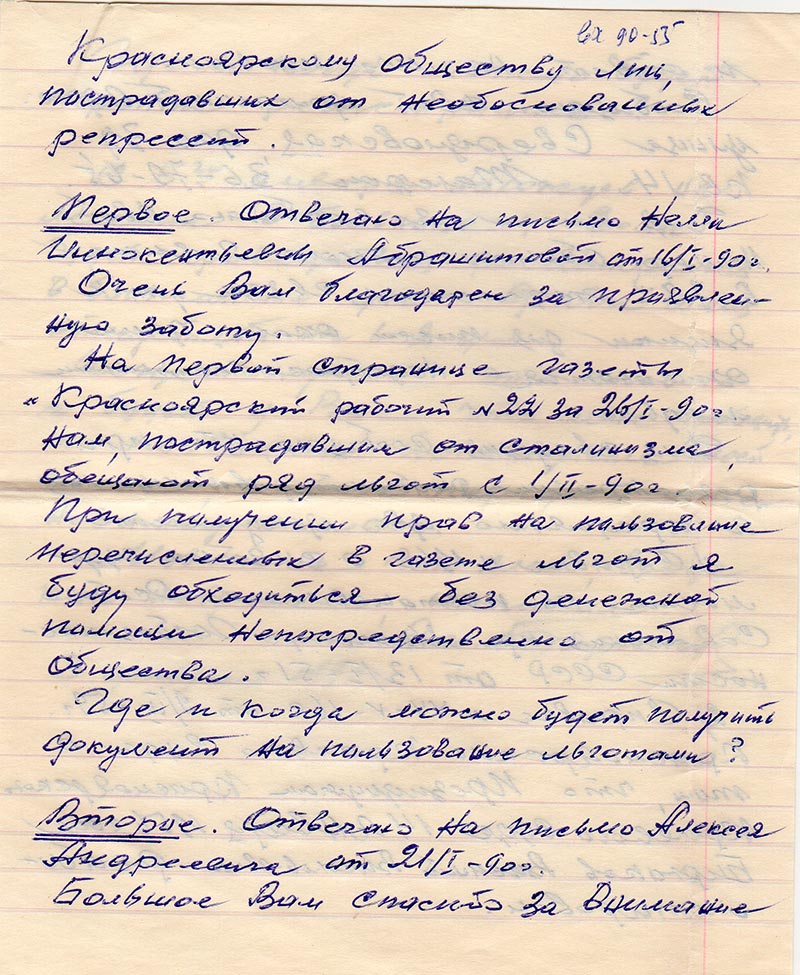 вх 90-55
Красноярскому обществу лиц,
пострадавших от необоснованных
репрессий.
Первое. Отвечаю на письмо Нелли
Иннокентьевны Абрашитовой от 16/I-90г.
Очень Вам благодарен за проявлен-
ную заботу.
На первой странице газеты
"Красноярский рабочий №22 за 26/I-90г.
нам, пострадавшим от сталинизма,
обещают ряд льгот с 1/II-90г.
При получении прав на пользование
перечисленных в газете льгот я
буду обходиться без денежной
помощи непосредственно от
общества.
Где и когда можно будет получить
документ на пользование льготами?
Второе. Отвечаю на письмо Алексея
Андреевича от 21/I-90г.
Большое Вам спасибо за внимание